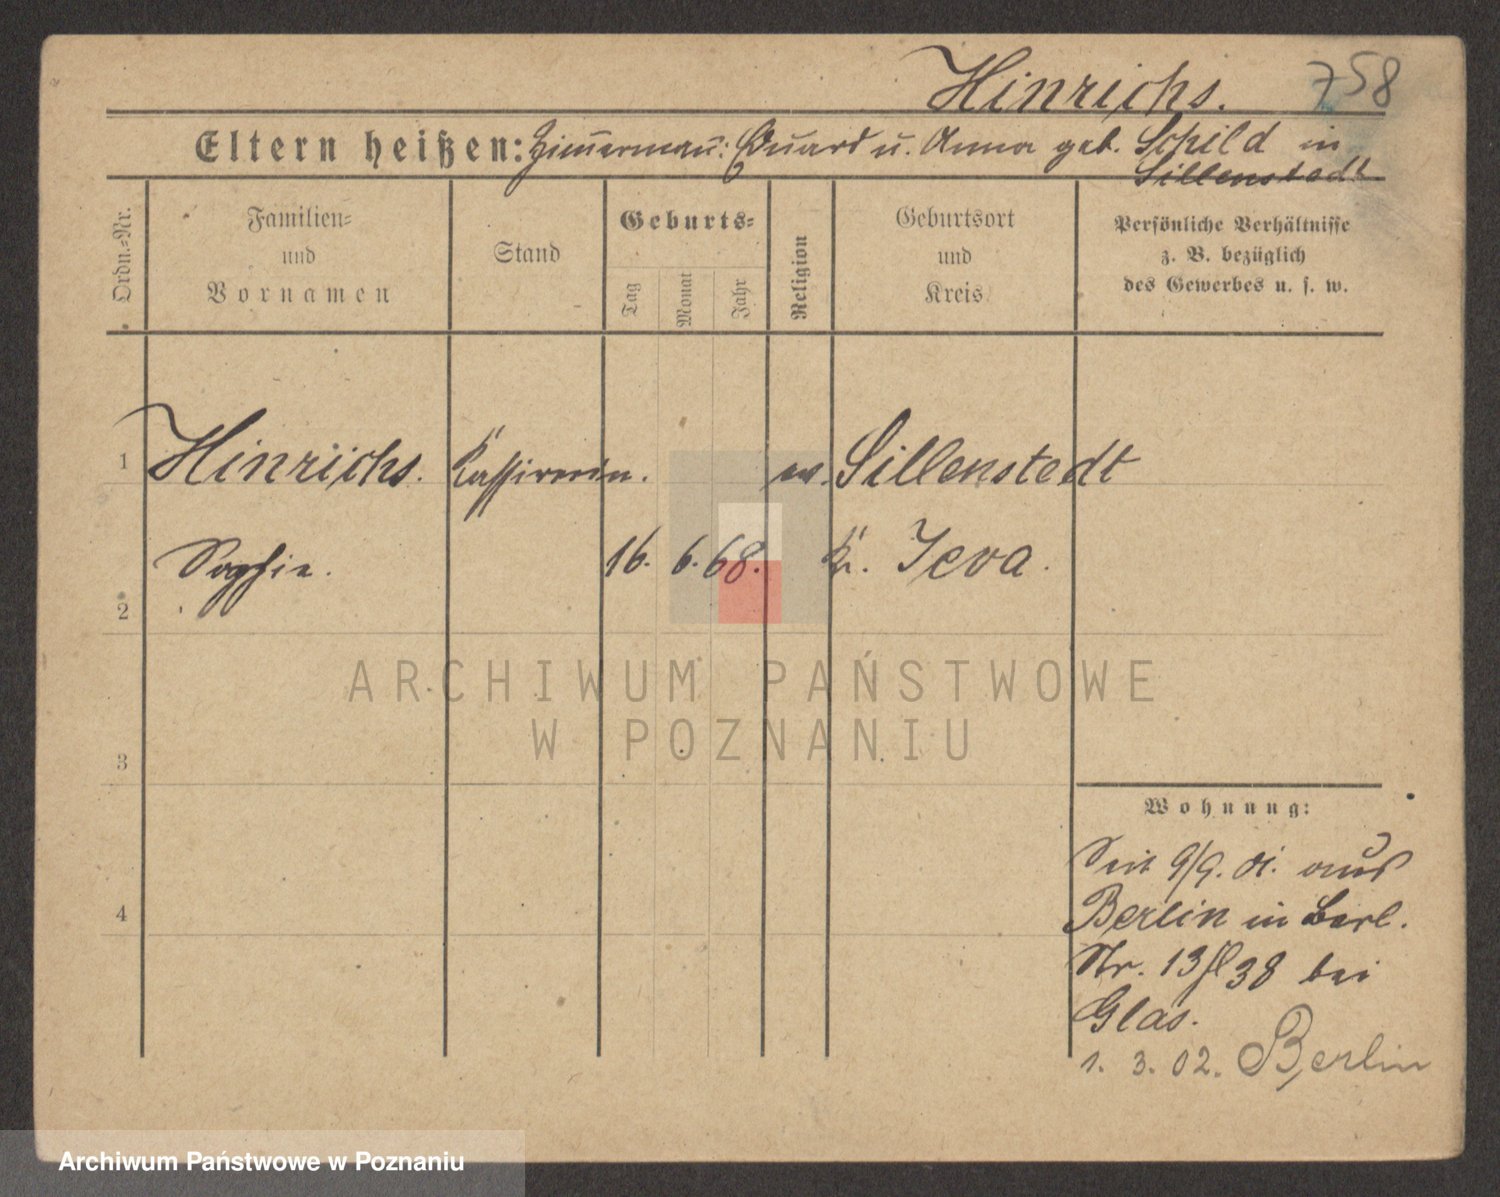 Hinrichs. 758
Eltern heißen: Zimmermann: Eduard u. Anna geb. Schild in
Sillenstedt
Ordn.=Nr.
Familien=
und
Vornamen
Stand
Geburts=
Tag
Monat
Jahr
Religion
Geburtsort
und
Kreis
Persönliche Verhältnisse
z. B. bezüglich
des Gewerbes u. s. w.
1 Hinrichs. Kassirerin. ev. Sillenstedt
Sophie. 16. 6. 68. K. Jeva.
2
ARCHIWUM PAŃSTWOWE
W POZNANIU
3
Wohnung:
Seit 9/9. 01. aus
4
Berlin in Berl.
Str. 13 38 bei
Glas.
1. 3. 02. Berlin
Archiwum Państwowe w Poznaniu